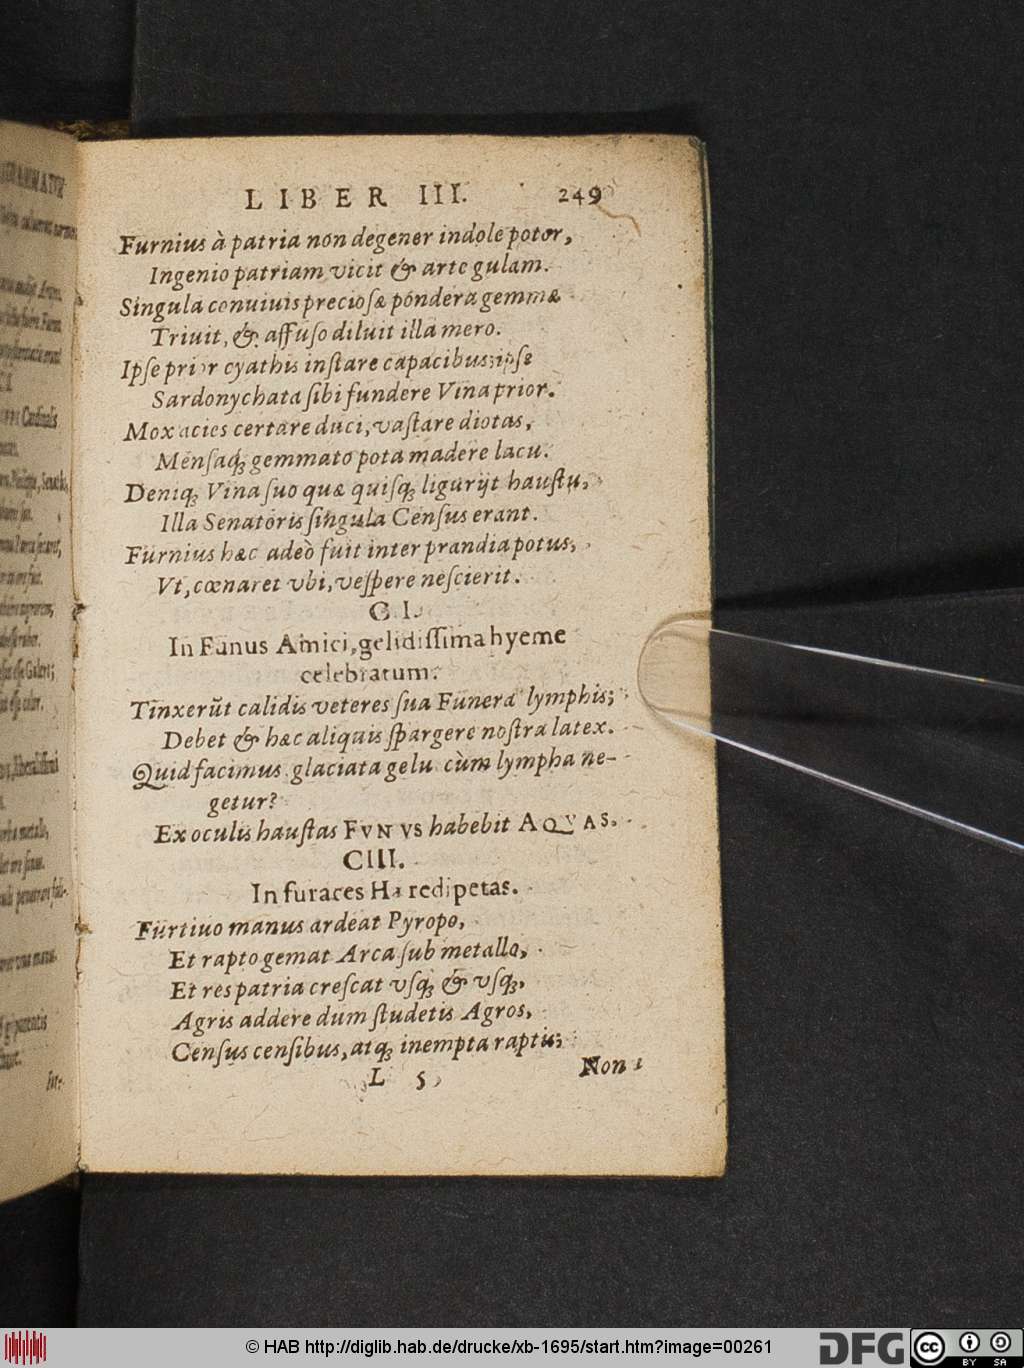 LIBER III. 249
Furnius à patria non degener indole potor,
Ingenio patriam vicit & arte gulam.
Singula conuiuis preciosæ pondera gemmæ
Triuit, & affuso diluit illa mero.
Ipse prior cyathis instare capacibus; ipse
Sardonychata sibi fundere Vina prior.
Mox acies certare duci, vastare diotas,
Mensaq; gemmato pota madere lacu.
Deniq; Vina suo quæ quisq; ligurijt haustu,
Illa Senatoris singula Census erant.
Furnius hæc adeò fuit inter prandia potus,
Vt, cœnaret vbi, vespere nescierit.
C I.
In Funus Amici, gelidissima hyeme
celebratum.
Tinxerũt calidis veteres sua Funera lymphis;
Debet & hæc aliquis spargere nostra latex.
Quid facimus glaciata gelu cùm lympha ne-
getur?
Ex oculis haustas FVNVS habebit AQVAS.
CIII.
In furaces Hæredipetas.
Furtiuo manus ardeat Pyropo,
Et rapto gemat Arca sub metallo,
Et res patria crescat vsq; & vsq;,
Agris addere dum studetis Agros,
Census censibus, atq; inempta raptis;
L 5
Non
© HAB http://diglib.hab.de/drucke/xb-1695/start.htm?image=00261
DFG
cc
BY SA